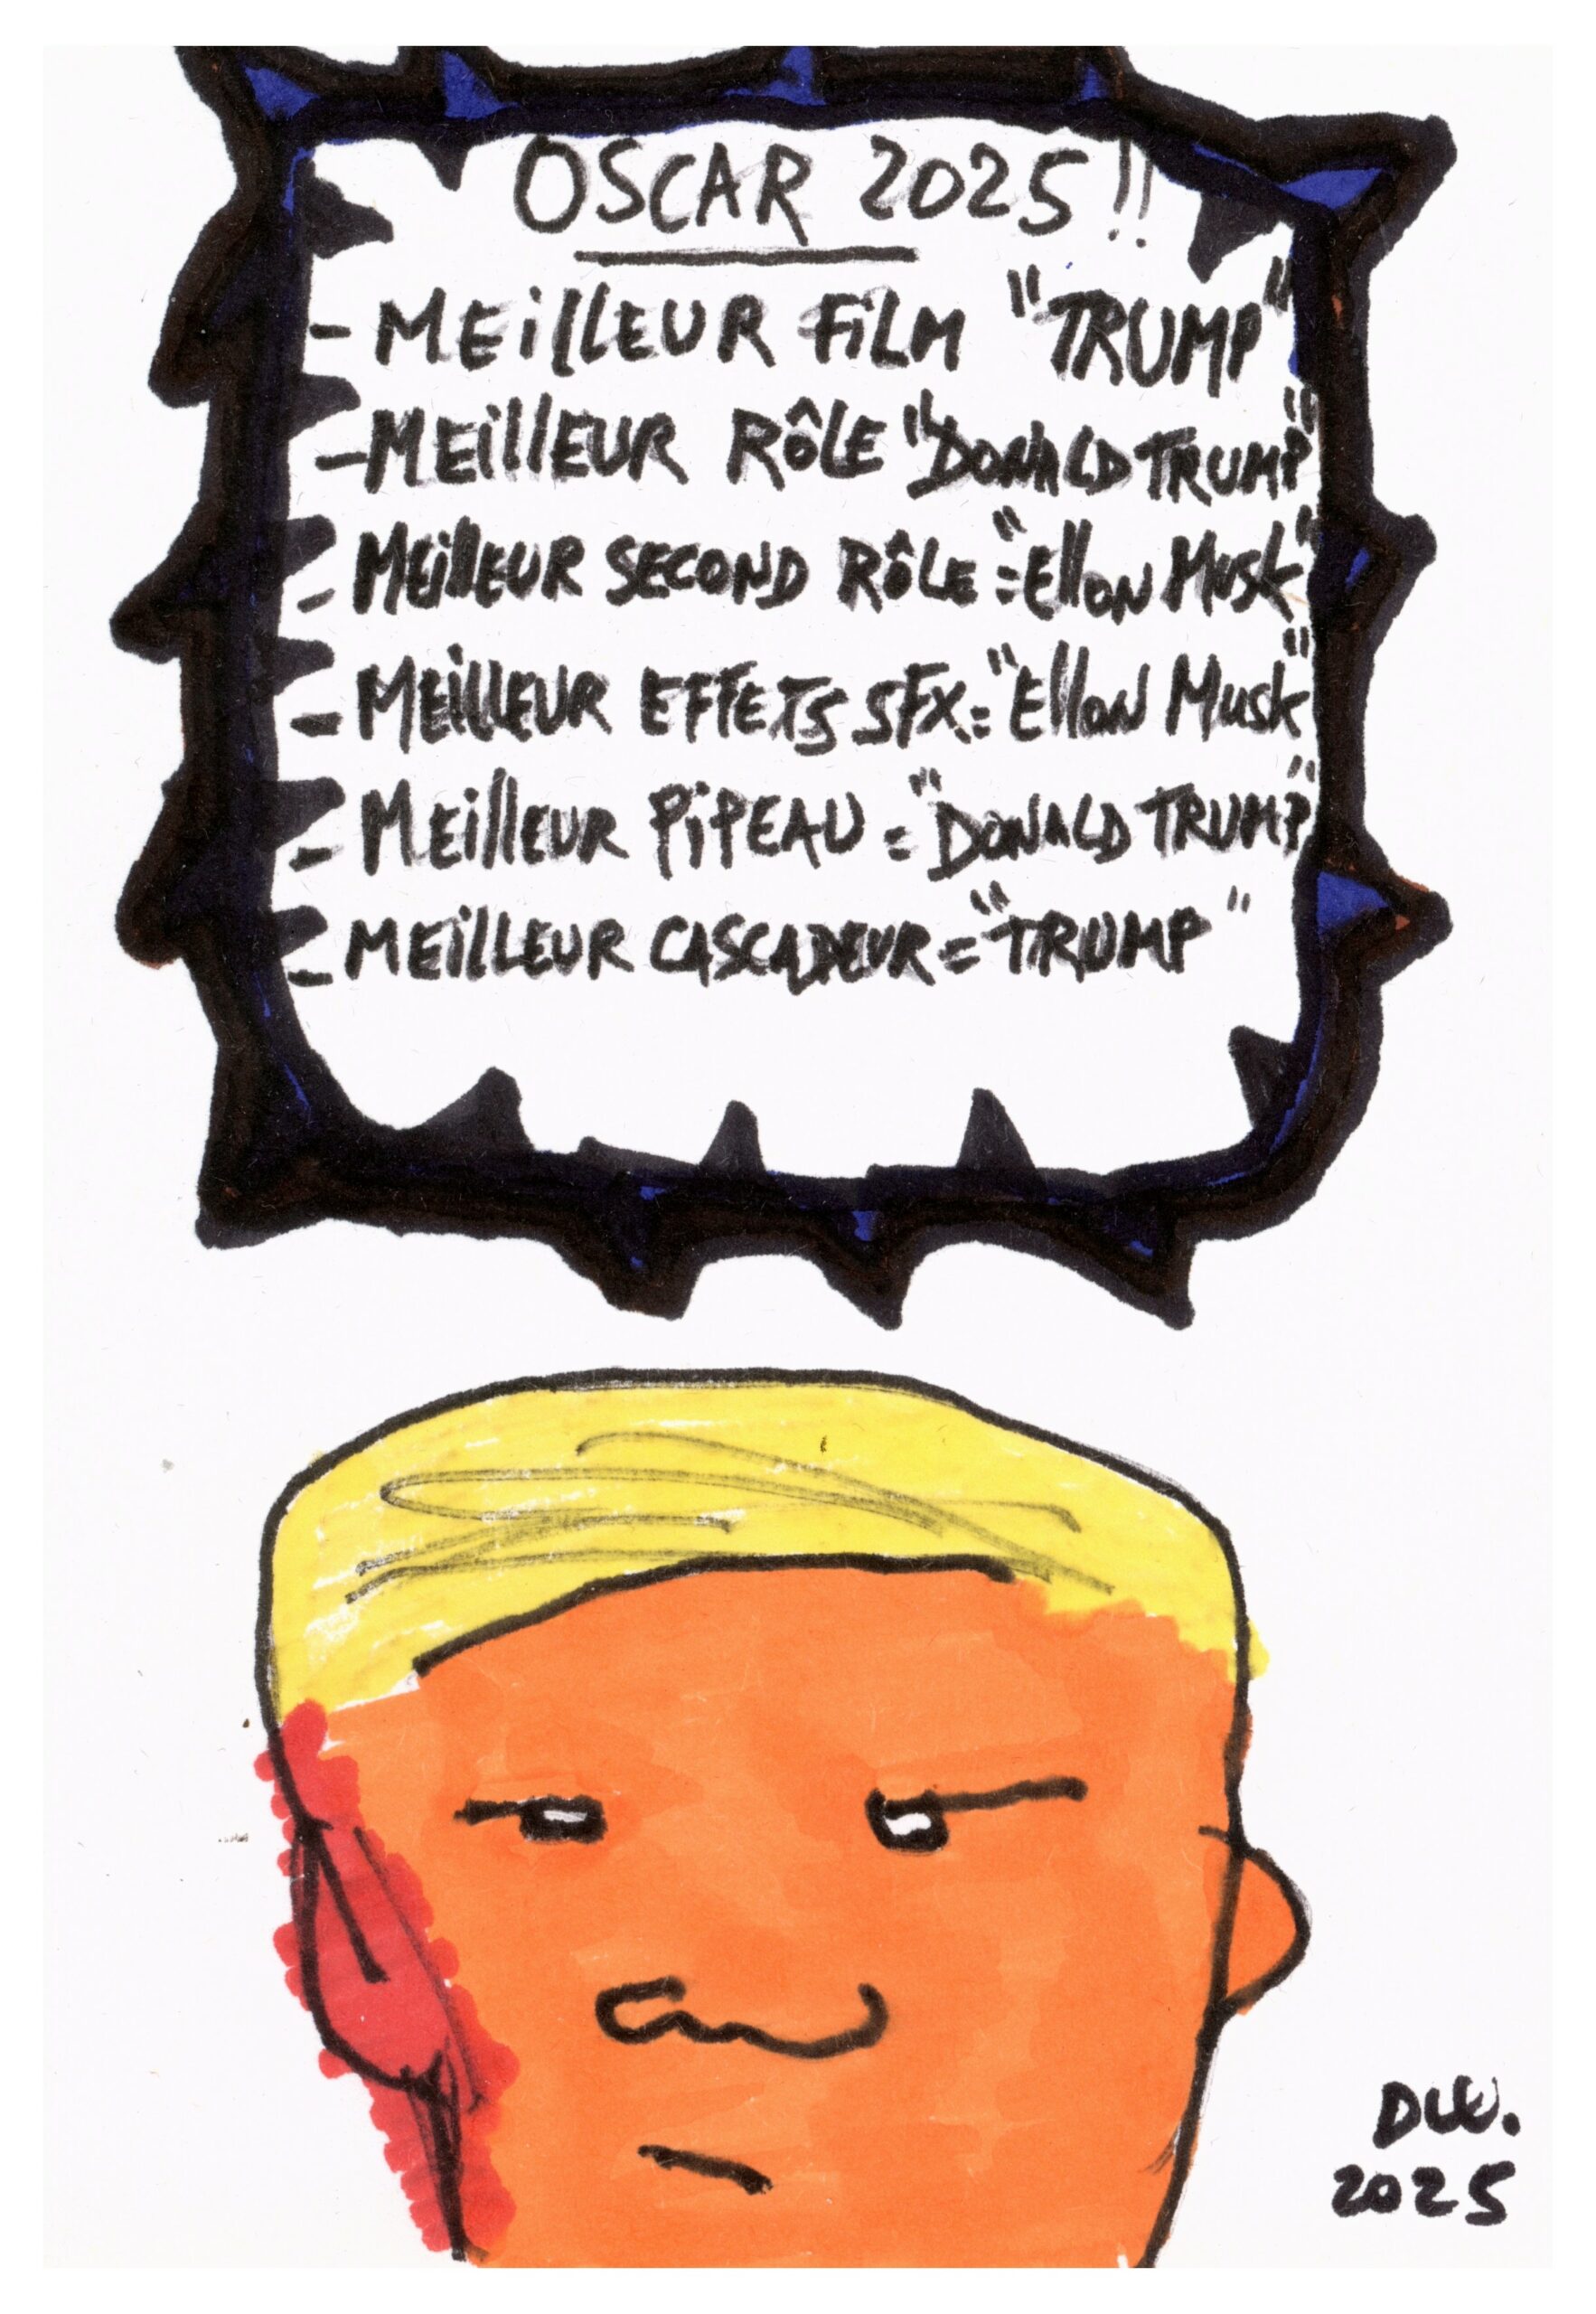 OSCAR 2025!!
- MEILLEUR FILM "TRUMP"
- MEILLEUR RÔLE "DONALD TRUMP"
- MEILLEUR SECOND RÔLE = "Ellon Musk"
- MEILLEUR EFFETS SFX = "Ellon Musk"
- MEILLEUR PIPEAU = "DONALD TRUMP"
- MEILLEUR CASCADEUR = "TRUMP"
2025